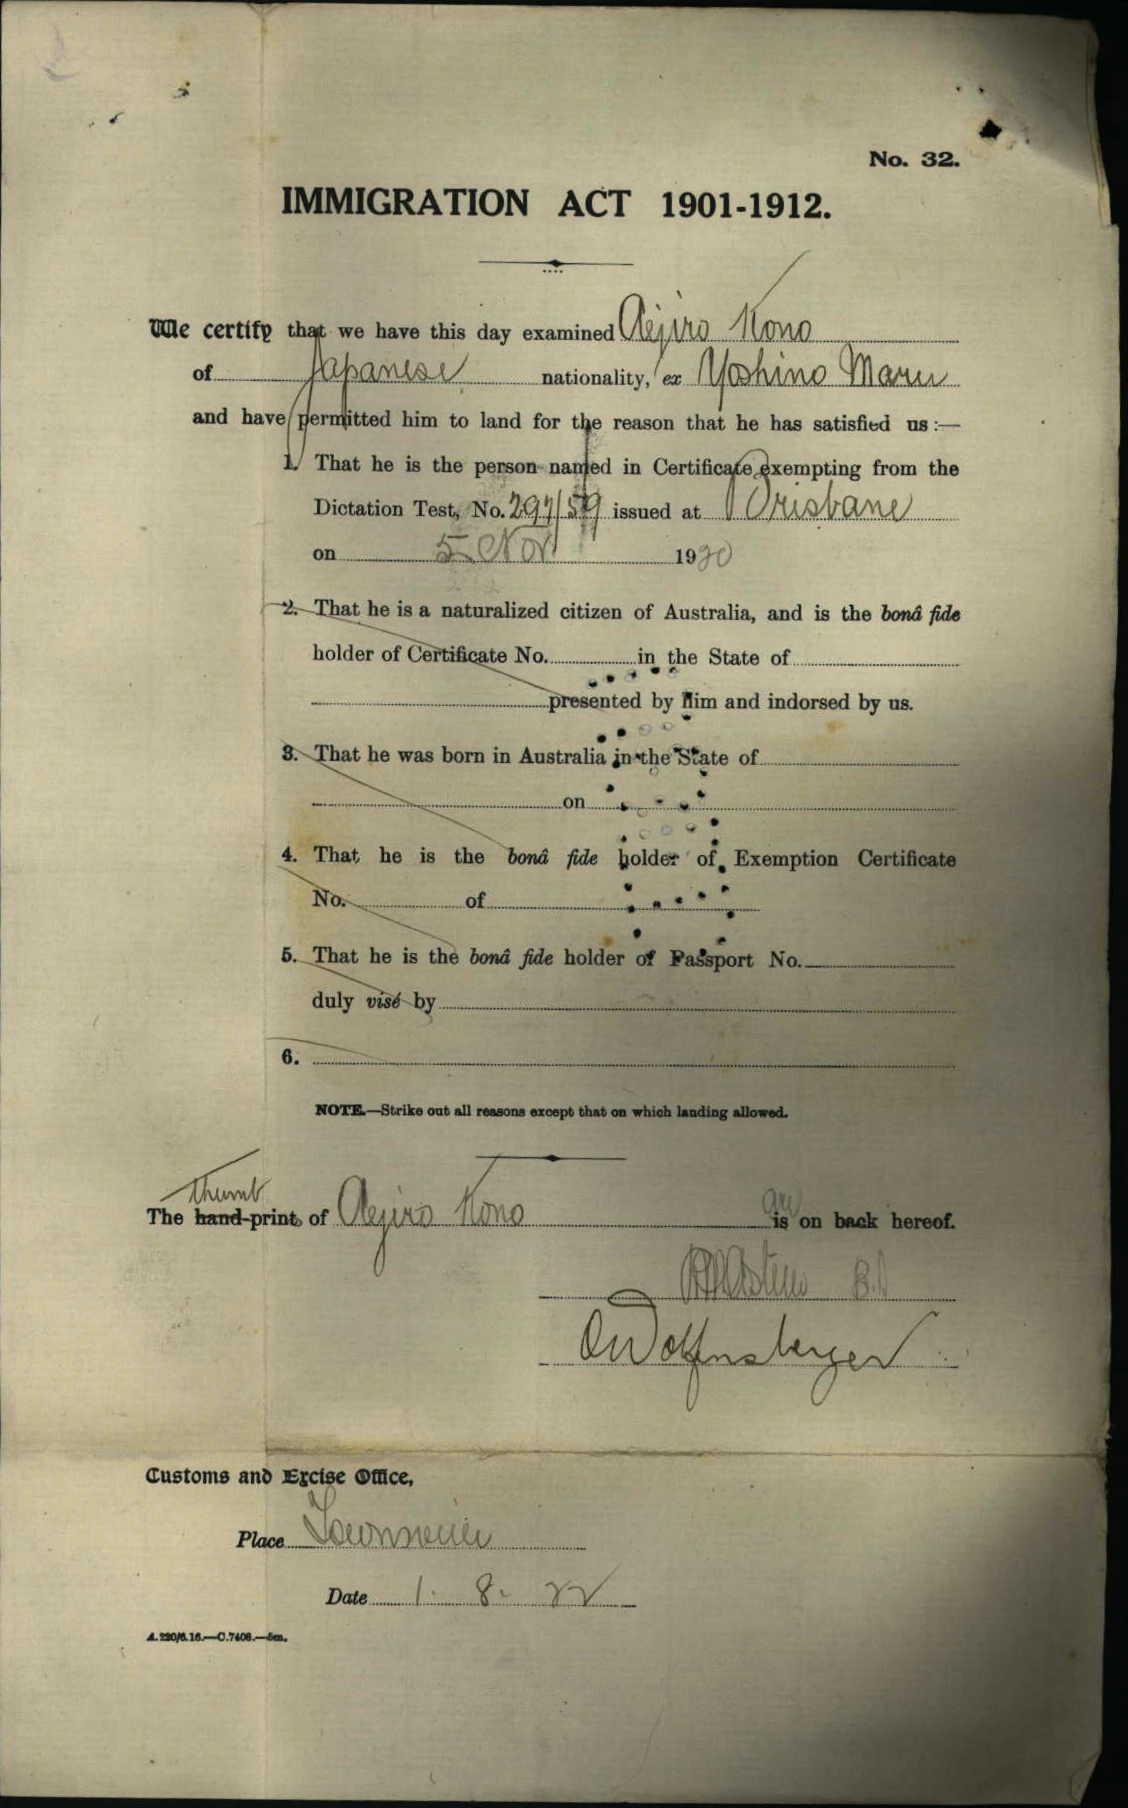 No. 32.
IMMIGRATION ACT 1901-1912.
We certify that we have this day examined Aejiro Kono
of Japanese nationality, ex Yoshino Maru
and have permitted him to land for the reason that he has satisfied us :—
1. That he is the person named in Certificate exempting from the
Dictation Test, No. 297/59 issued at Brisbane
on 5 Nov 1920
2. That he is a naturalized citizen of Australia, and is the bonâ fide
holder of Certificate No. in the State of
presented by him and indorsed by us.
3. That he was born in Australia in the State of
on
4. That he is the bonâ fide holder of Exemption Certificate
No. of
5. That he is the bonâ fide holder of Passport No.
duly visé by
6.
NOTE.—Strike out all reasons except that on which landing allowed.
thumb
The hand-prints of Aejiro Kono is are on back hereof.
O Wolfensberger
Customs and Excise Office,
Place Townsville
Date 1. 8. 22
A.220/6.16.—C.7408.—5m.